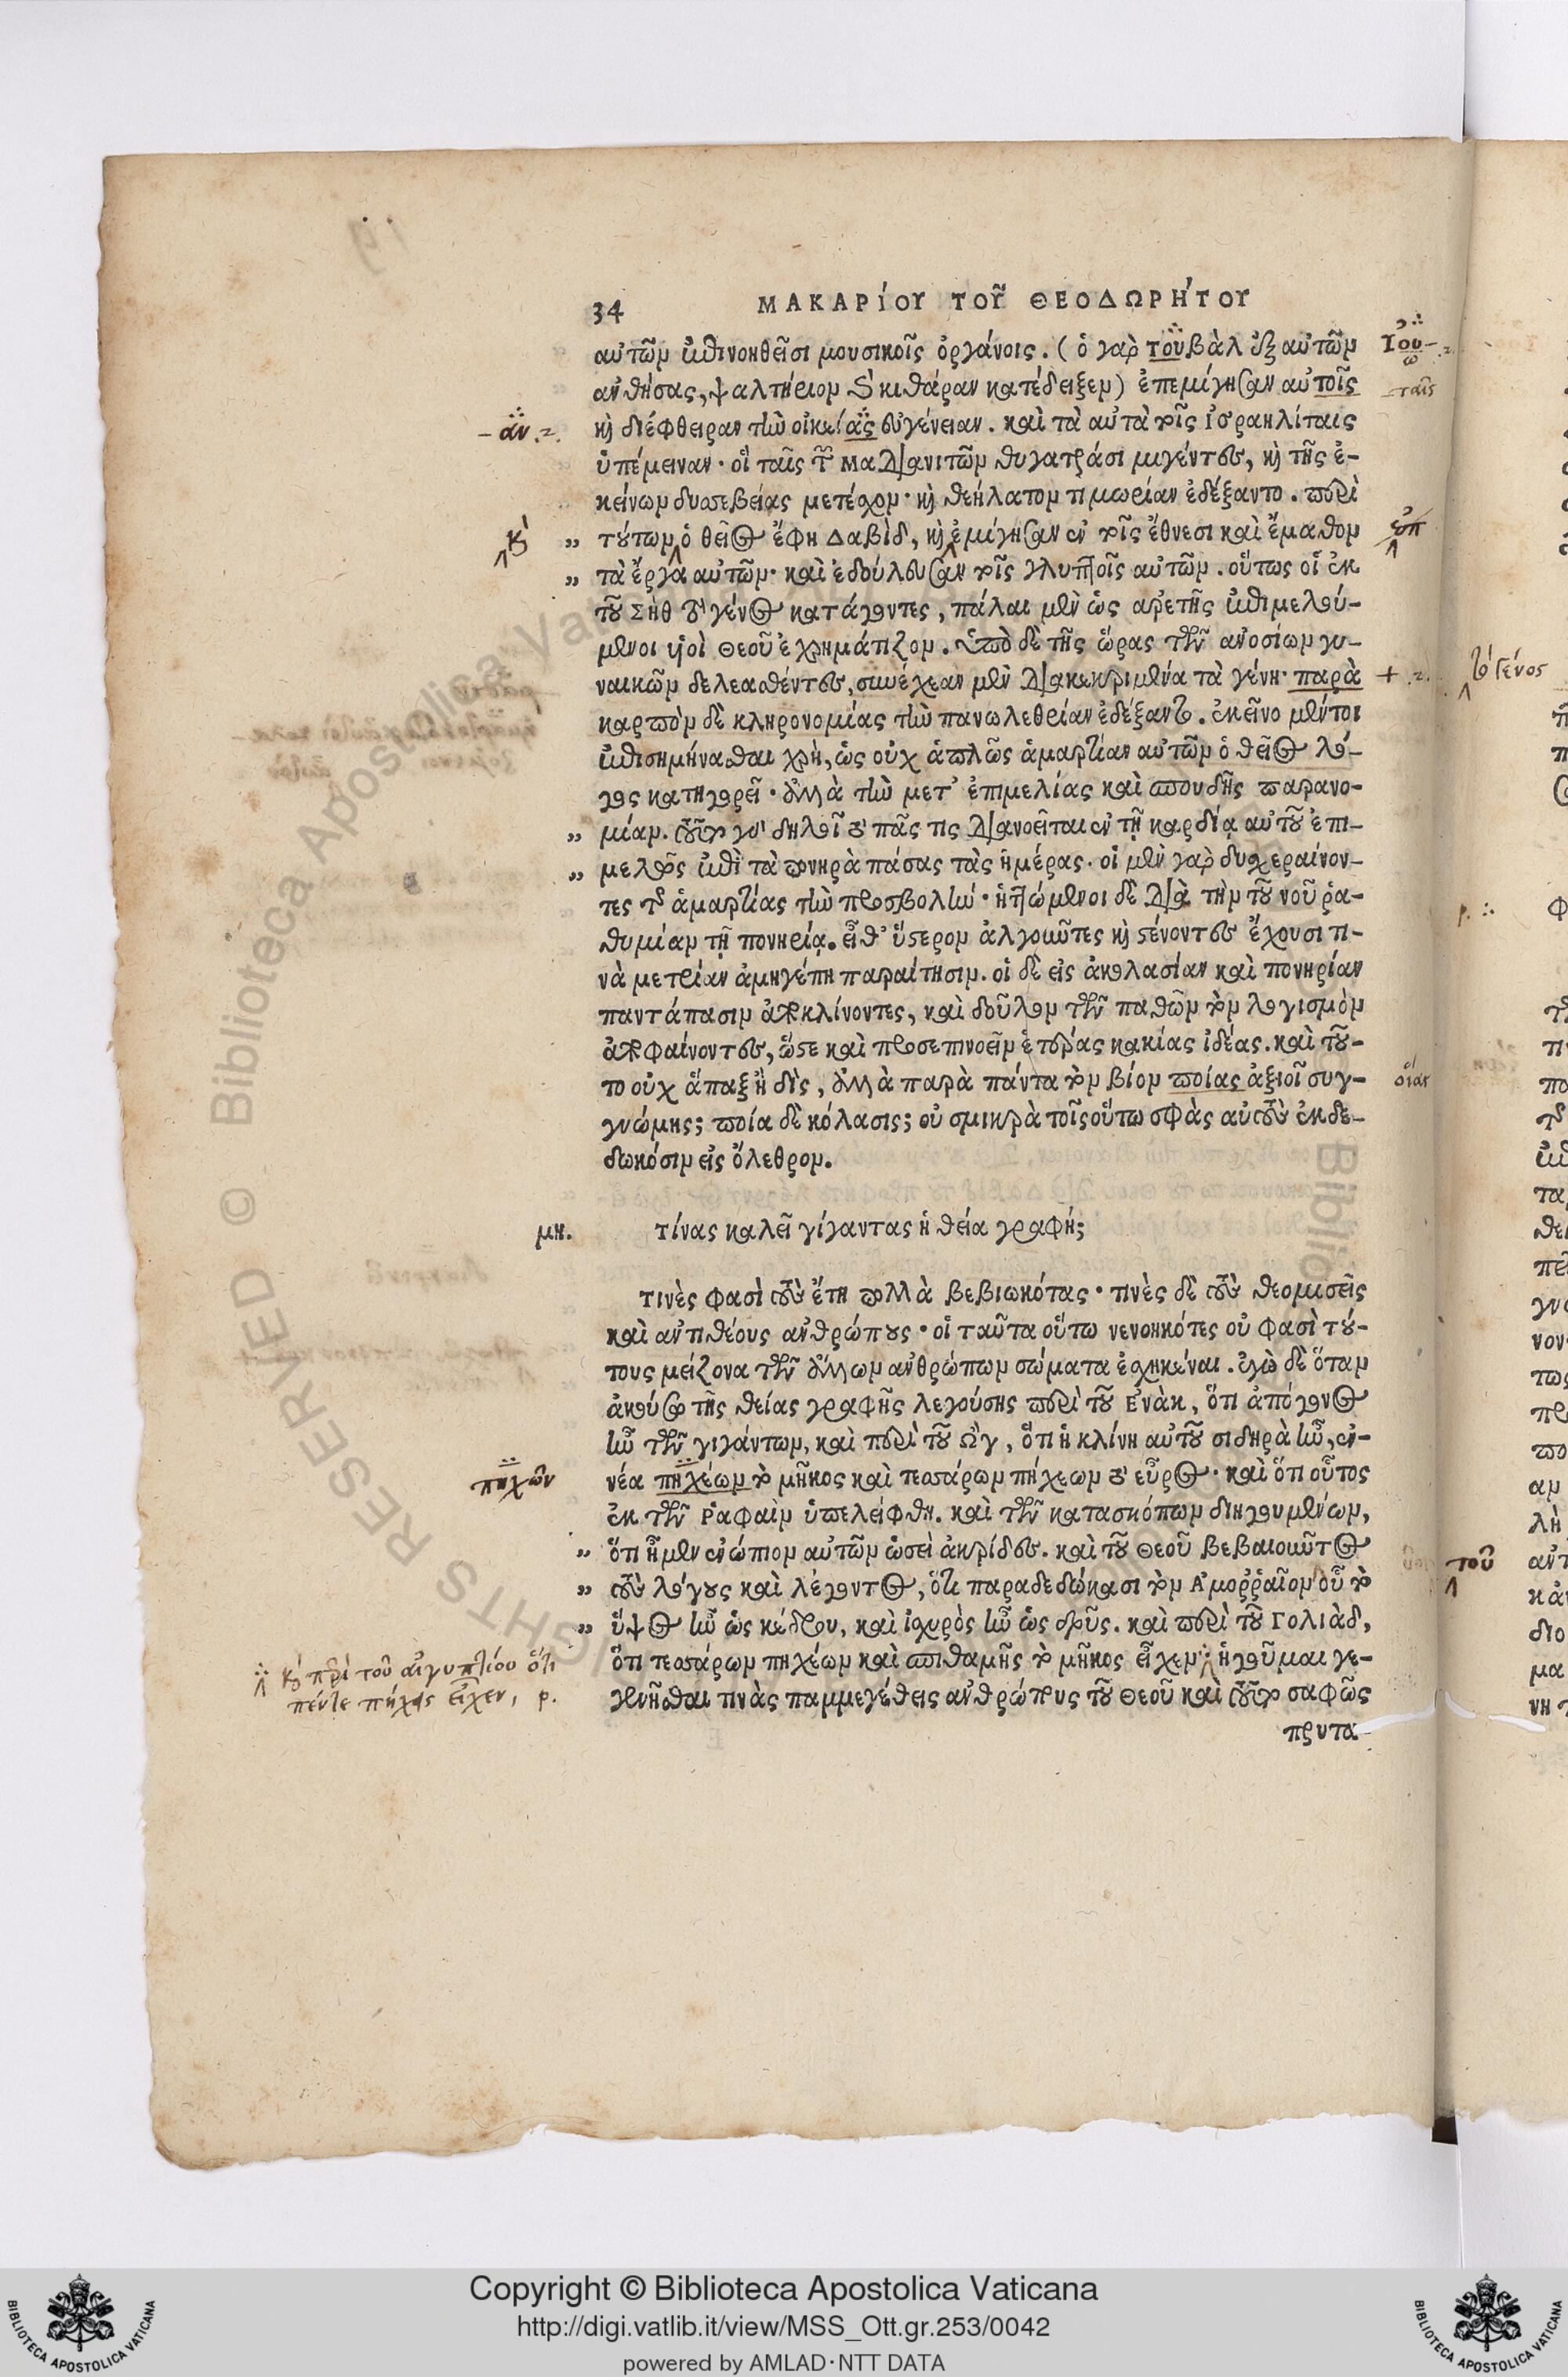 34 ΜΑΚΑΡίΟΥ ΤΟΥ͂ ΘΕΟΔΩΡΉΤΟΥ
αὐτῶν ἐπινοηθεῖσι μουσικοῖς ὀργάνοις. (ὁ γὰρ τοὺβὰλ ἐξ αὐτῶν
Ἰου-
ω
ἀνθήσας, ψαλτήριον καὶ κιθάραν κατέδειξεν) ἐπεμίγησαν αὐτοῖς
-ταῖς
καὶ διέφθειραν τὴν οἰκείας εὐγένειαν. καὶ τὰ αὐτὰ τοῖς ἰσραηλίταις
-ὰν.
ὑπέμειναν· οἳ ταῖς τῶν Μαδιανιτῶν θυγατράσι μιγέντες, καὶ τῆς ἐ-
κείνων δυσσεβείας μετέσχον· καὶ θεήλατον τιμωρίαν ἐδέξαντο. περὶ
„ τούτων ὁ θεῖος ἔφη Δαβὶδ, καὶ ἐμίγησαν ἐν τοῖς ἔθνεσι καὶ ἔμαθον
κὶ
„ τὰ ἔργα αὐτῶν· καὶ ἐδούλευσαν τοῖς γλυπτοῖς αὐτῶν. οὕτως οἱ ἐκ
τοῦ Σὴθ τὸ γένος κατάγοντες, πάλαι μὲν ὡς ἀρετῆς ἐπιμελού-
μενοι υἱοὶ Θεοῦ ἐχρημάτιζον. ὑπὸ δὲ τῆς ὥρας τῶν ἀνοσίων γυ-
ναικῶν δελεασθέντες, συνέχεαν μὲν διακεκριμένα τὰ γένη· παρὰ
+
τὸ γένος
καρπὸν δὲ κληρονομίας τὴν πανωλεθρίαν ἐδέξαντο. ἐκεῖνο μέντοι
ἐπισημήνασθαι χρὴ, ὡς οὐχ ἁπλῶς ἁμαρτίαν αὐτῶν ὁ θεῖος λό-
γος κατηγορεῖ· ἀλλὰ τὴν μετ' ἐπιμελίας καὶ σπουδῆς παρανο-
„ μίαν. τοῦτο γὰρ δηλοῖ τὸ πᾶς τις διανοεῖται ἐν τῇ καρδίᾳ αὐτοῦ ἐπι-
„ μελῶς ἐπὶ τὰ πονηρὰ πάσας τὰς ἡμέρας. οἱ μὲν γὰρ δυσχεραίνον-
τες τῆς ἁμαρτίας τὴν προσβολὴν· ἡττώμενοι δὲ διὰ τὴν τοῦ νοῦ ῥα-
θυμίαν τῇ πονηρίᾳ. εἶθ' ὕστερον ἀλγοιῶτες καὶ στένοντες ἔχουσι τι-
νὰ μετρίαν ἀμηγέπη παραίτησιν. οἱ δὲ εἰς ἀκολασίαν καὶ πονηρίαν
παντάπασιν ἀποκλίνοντες, καὶ δοῦλον τῶν παθῶν τὸν λογισμὸν
ἀποφαίνοντες, ὥστε καὶ προσεπινοεῖν ἑτέρας κακίας ἰδέας. καὶ τοῦ-
το οὐχ ἅπαξ ἢ δὶς, ἀλλὰ παρὰ πάντα τὸν βίον ποίας ἀξιοῖ συγ-
γνώμης; ποία δὲ κόλασις; οὐ σμικρὰ τοῖς οὕτω σφὰς αὐτοὺς ἐκδε-
δωκόσιν εἰς ὄλεθρον.
μη. τίνας καλεῖ γίγαντας ἡ θεία γραφή;
τινὲς φασὶ τοὺς ἔτη πολλὰ βεβιωκότας· τινὲς δὲ τοὺς θεομισεῖς
καὶ ἀντιθέους ἀνθρώπους· οἱ ταῦτα οὕτω νενοηκότες οὐ φασὶ τού-
τους μείζονα τῶν ἄλλων ἀνθρώπων σώματα ἐσχηκέναι. ἐγὼ δὲ ὅταν
ἀκούσω τῆς θείας γραφῆς λεγούσης περὶ τοῦ Ἐνὰκ, ὅτι ἀπόγονος
ἦν τῶν γιγάντων, καὶ περὶ τοῦ Ὢγ, ὅτι ἡ κλίνη αὐτοῦ σιδηρὰ ἦν, ἐν-
νέα πηχέων τὸ μῆκος καὶ τεσσάρων πήχεων τὸ εὖρος· καὶ ὅτι οὗτος
πηχῶν
ἐκ τῶν Ῥαφαὶν ὑπελείφθη. καὶ τῶν κατασκόπων διηγουμένων,
„ ὅτι ἦμεν ἐνώπιον αὐτῶν ὡσεὶ ἀκρίδες. καὶ τοῦ Θεοῦ βεβαιοιῶτος
τοῦ
„ τοὺς λόγους καὶ λέγοντος, ὅτι παραδεδώκασι τὸν Ἀμοῤῥαῖον οὗ τὸ
„ ὕψος ἦν ὡς κέδρου, καὶ ἰσχυρὸς ἦν ὡς δρῦς. καὶ περὶ τοῦ Γολιὰδ,
ὅτι τεσσάρων πηχέων καὶ σπιθαμῆς τὸ μῆκος εἶχεν· ἡγοῦμαι γε-
κὶ περὶ τοῦ αἰγυπτίου ὅτι
πέντε πήχεις εἶχεν, p.
γενῆσθαι τινὰς παμμεγέθεις ἀνθρώπους τοῦ Θεοῦ καὶ τοῦτο σαφῶς
πρυτα-
© Biblioteca Apostolica Vaticana
RIGHTS RESERVED
Copyright © Biblioteca Apostolica Vaticana
http://digi.vatlib.it/view/MSS_Ott.gr.253/0042
powered by AMLAD·NTT DATA
BIBLIOTECA APOSTOLICA VATICANA
BIBLIOTECA APOSTOLICA VATICANA